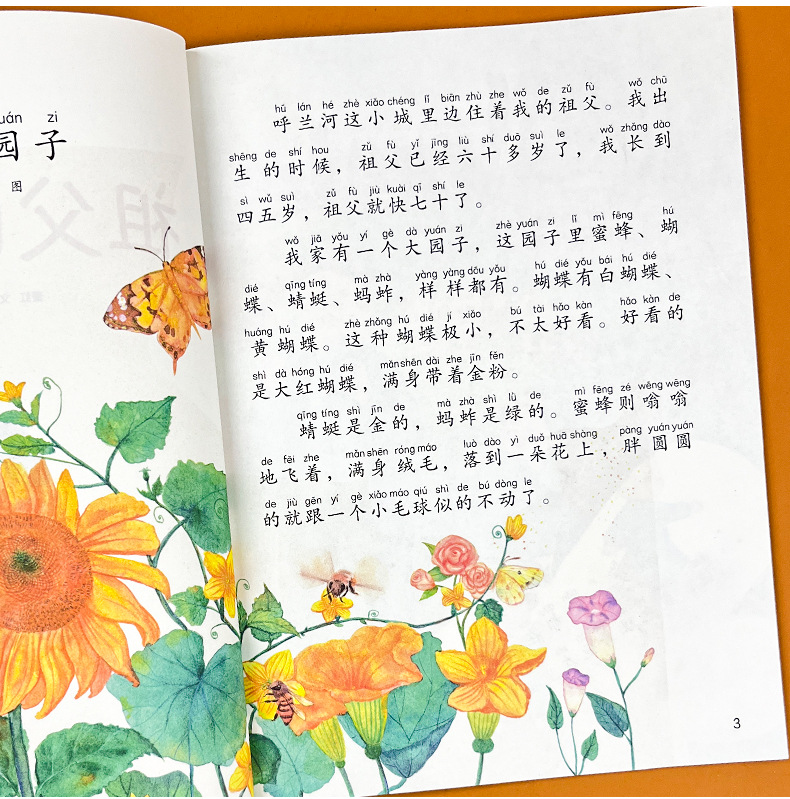 uán zi
园子
图
hū lán hé zhè xiǎo chéng lǐ biān zhù zhe wǒ de zǔ fù wǒ chū
呼兰河这小城里边住着我的祖父。我出
shēng de shí hou zǔ fù yǐ jīng liù shí duō suì le wǒ zhǎng dào
生的时候，祖父已经六十多岁了，我长到
sì wǔ suì zǔ fù jiù kuài qī shí le
四五岁，祖父就快七十了。
wǒ jiā yǒu yí gè dà yuán zi zhè yuán zi lǐ mì fēng hú
我家有一个大园子，这园子里蜜蜂、蝴
dié qīng tíng mà zhà yàng yàng dōu yǒu hú dié yǒu bái hú dié
蝶、蜻蜓、蚂蚱，样样都有。蝴蝶有白蝴蝶、
huáng hú dié zhè zhǒng hú dié jí xiǎo bú tài hǎo kàn hǎo kàn de
黄蝴蝶。这种蝴蝶极小，不太好看。好看的
shì dà hóng hú dié mǎn shēn dài zhe jīn fěn
是大红蝴蝶，满身带着金粉。
qīng tíng shì jīn de mà zhà shì lǜ de mì fēng zé wēng wēng
蜻蜓是金的，蚂蚱是绿的。蜜蜂则嗡嗡
de fēi zhe mǎn shēn róng máo luò dào yì duǒ huā shàng pàng yuán yuán
地飞着，满身绒毛，落到一朵花上，胖圆圆
de jiù gēn yí gè xiǎo máo qiú shì de bú dòng le
的就跟一个小毛球似的不动了。
3